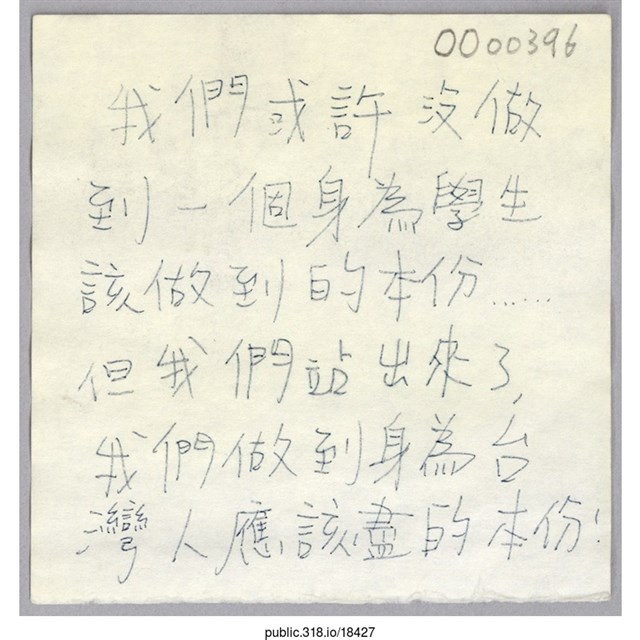 0000396
我們或許沒做
到一個身為學生
該做到的本份......
但我們站出來了,
我們做到身為台
灣人應該盡的本份!
public.318.io/18427